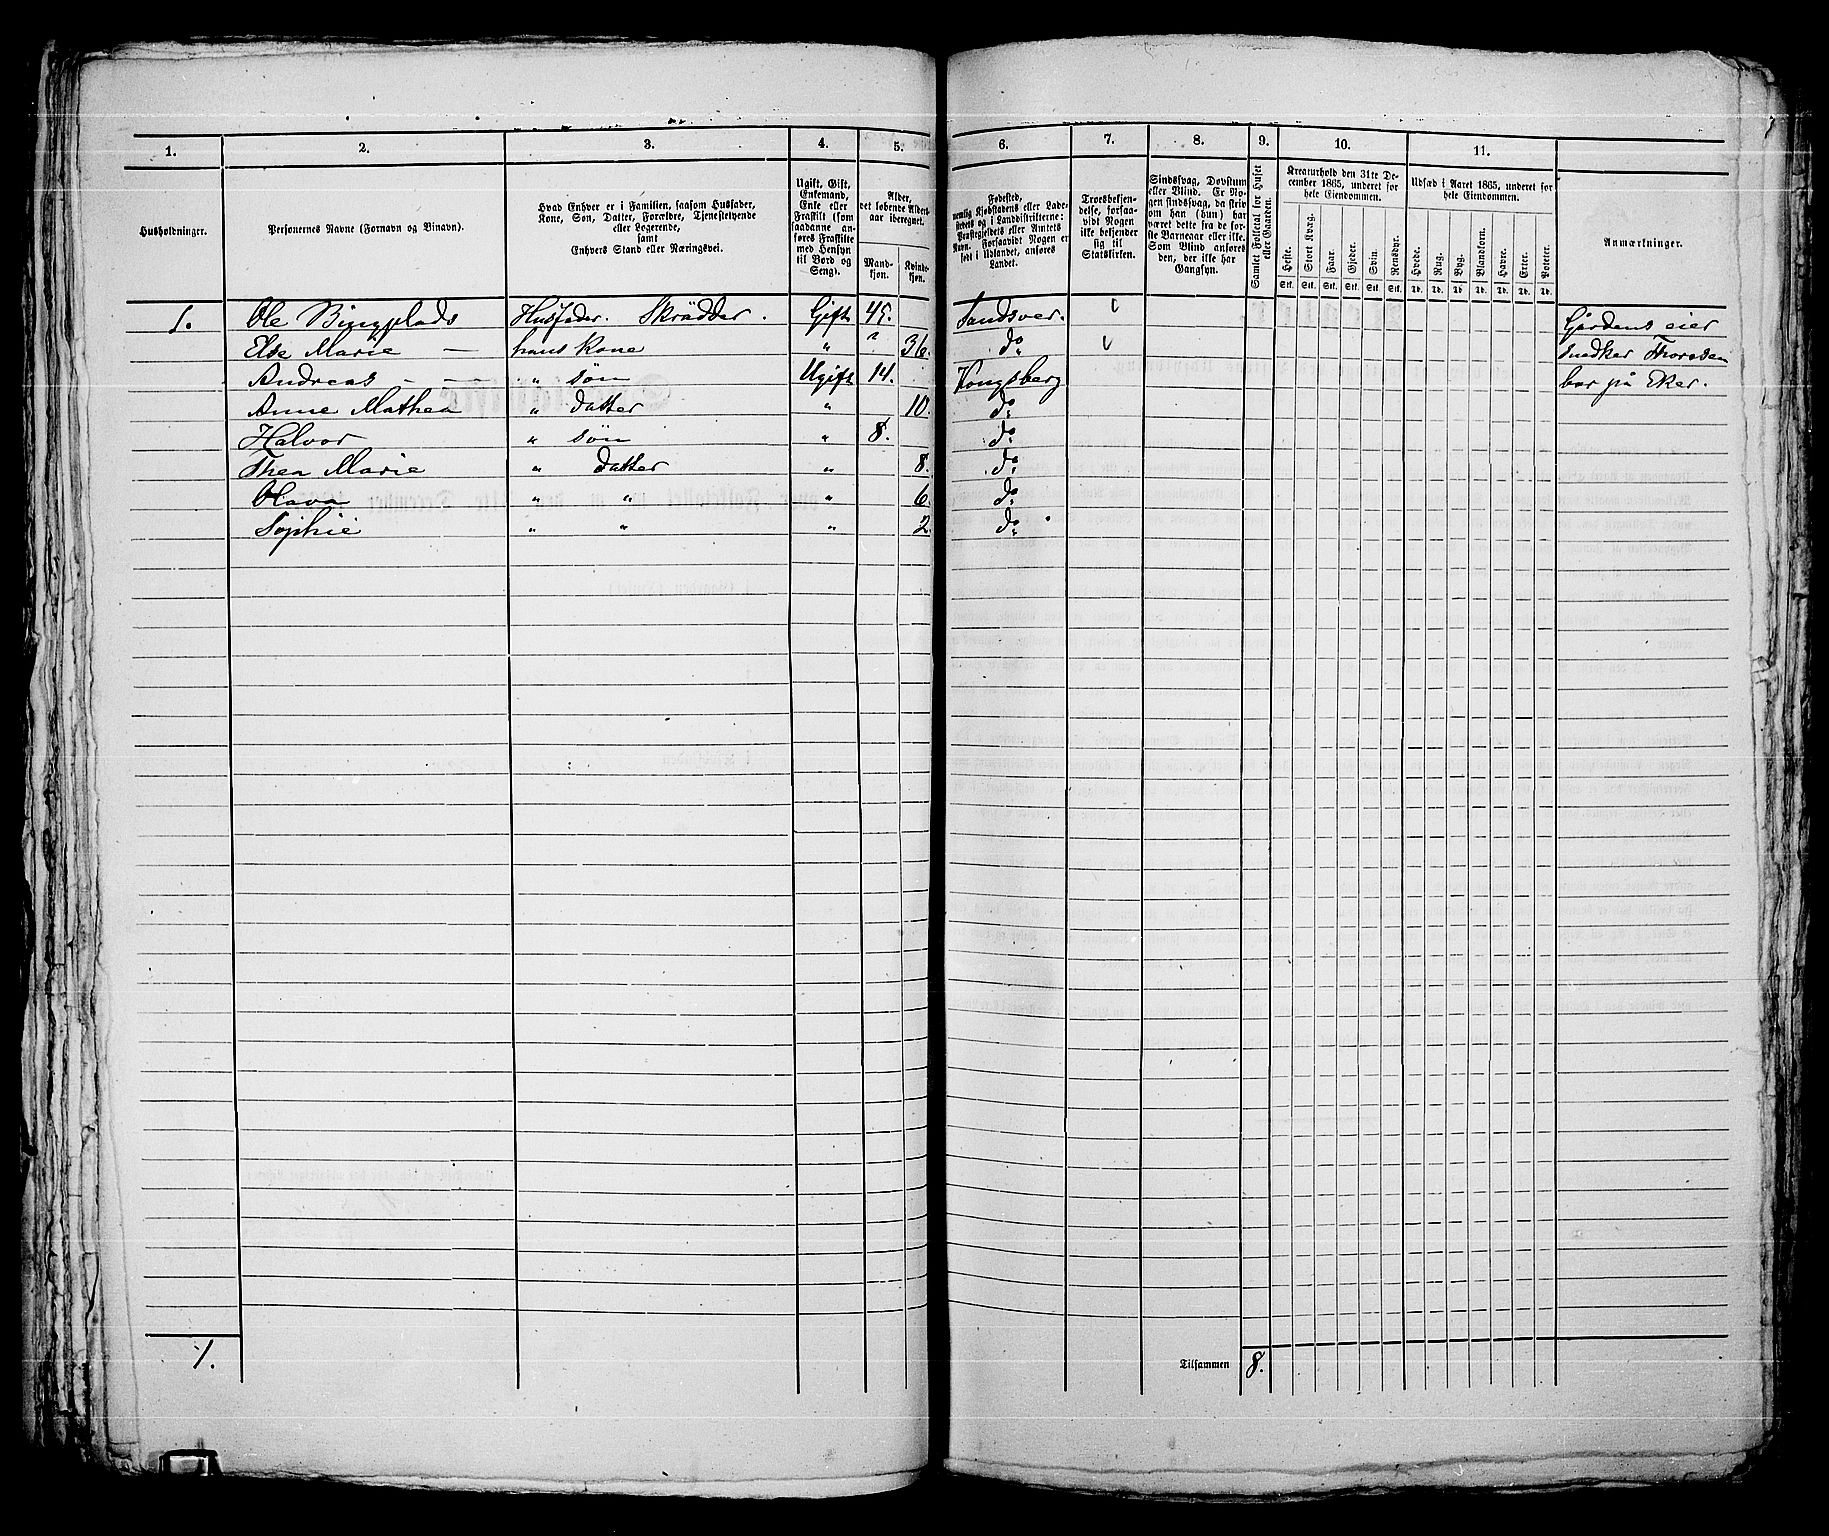 1. 2. 3. 4. 5. 6. 7. 8. 9. 10. 11.
Husholdninger.
Personernes Navne (Fornavn og Binavn).
Hvad Enhver er i Familien, saasom Husfader,
Kone, Søn, Datter, Forældre, Tjenestetyende
eller Logerende,
samt
Enhvers Stand eller Næringsvei.
Ugift, Gift,
Enkemand,
Enke eller
Fraskilt (som
saadanne an-
føres Fraskilte
med Hensyn
til Bord og
Seng).
Alder,
det løbende Alders-
aar iberegnet.
Mand-
kjøn.
Kvinde-
kjøn.
Fødested,
nemlig Kjøbstadens eller Lade-
stedets og i Landdistrikterne:
Præstegjeldets eller Amtets
Navn. Forsaavidt Nogen er
født i Udlandet, anføres
Landet.
Troesbekjen-
delse, forsaa-
vidt Nogen
ikke bekjender
sig til
Statskirken.
Sindssvag, Døvstum
eller Blind. Er No-
gen sindssvag, da skriv
om han (hun) har
været dette fra de før-
ste Barneaar eller ikke.
Som Blind anføres
den, der ikke har
Gangsyn.
Samlet Folketal for Huset
eller Gaarden.
Kreaturhold den 31te De-
cember 1865, underet for
hele Eiendommen.
Heste. Stort Kvæg. Faar. Gjeder. Svin. Rensdyr.
Stk. Stk. Stk. Stk. Stk. Stk.
Udsæd i Aaret 1865, underet for
hele Eiendommen.
Hvede. Rug. Byg. Blandkorn. Havre. Erter. Poteter.
Td. Td. Td. Td. Td. Td. Td.
Anmærkninger.
1. Ole Husfader. Skrædder. Gift 45. Sandsver. Gårdens eier
Else Marie — hans Kone " 36. do snedker Thoresen
Andreas - - " søn Ugift 14. Kongsberg bor på Eker.
Anne Mathea " datter " 10. do
Halvor " søn " 8. do
Thea Marie " datter " 8. do
Olava " " " 6. do
Sophie " " " 2. do
1. Tilsammen 8.